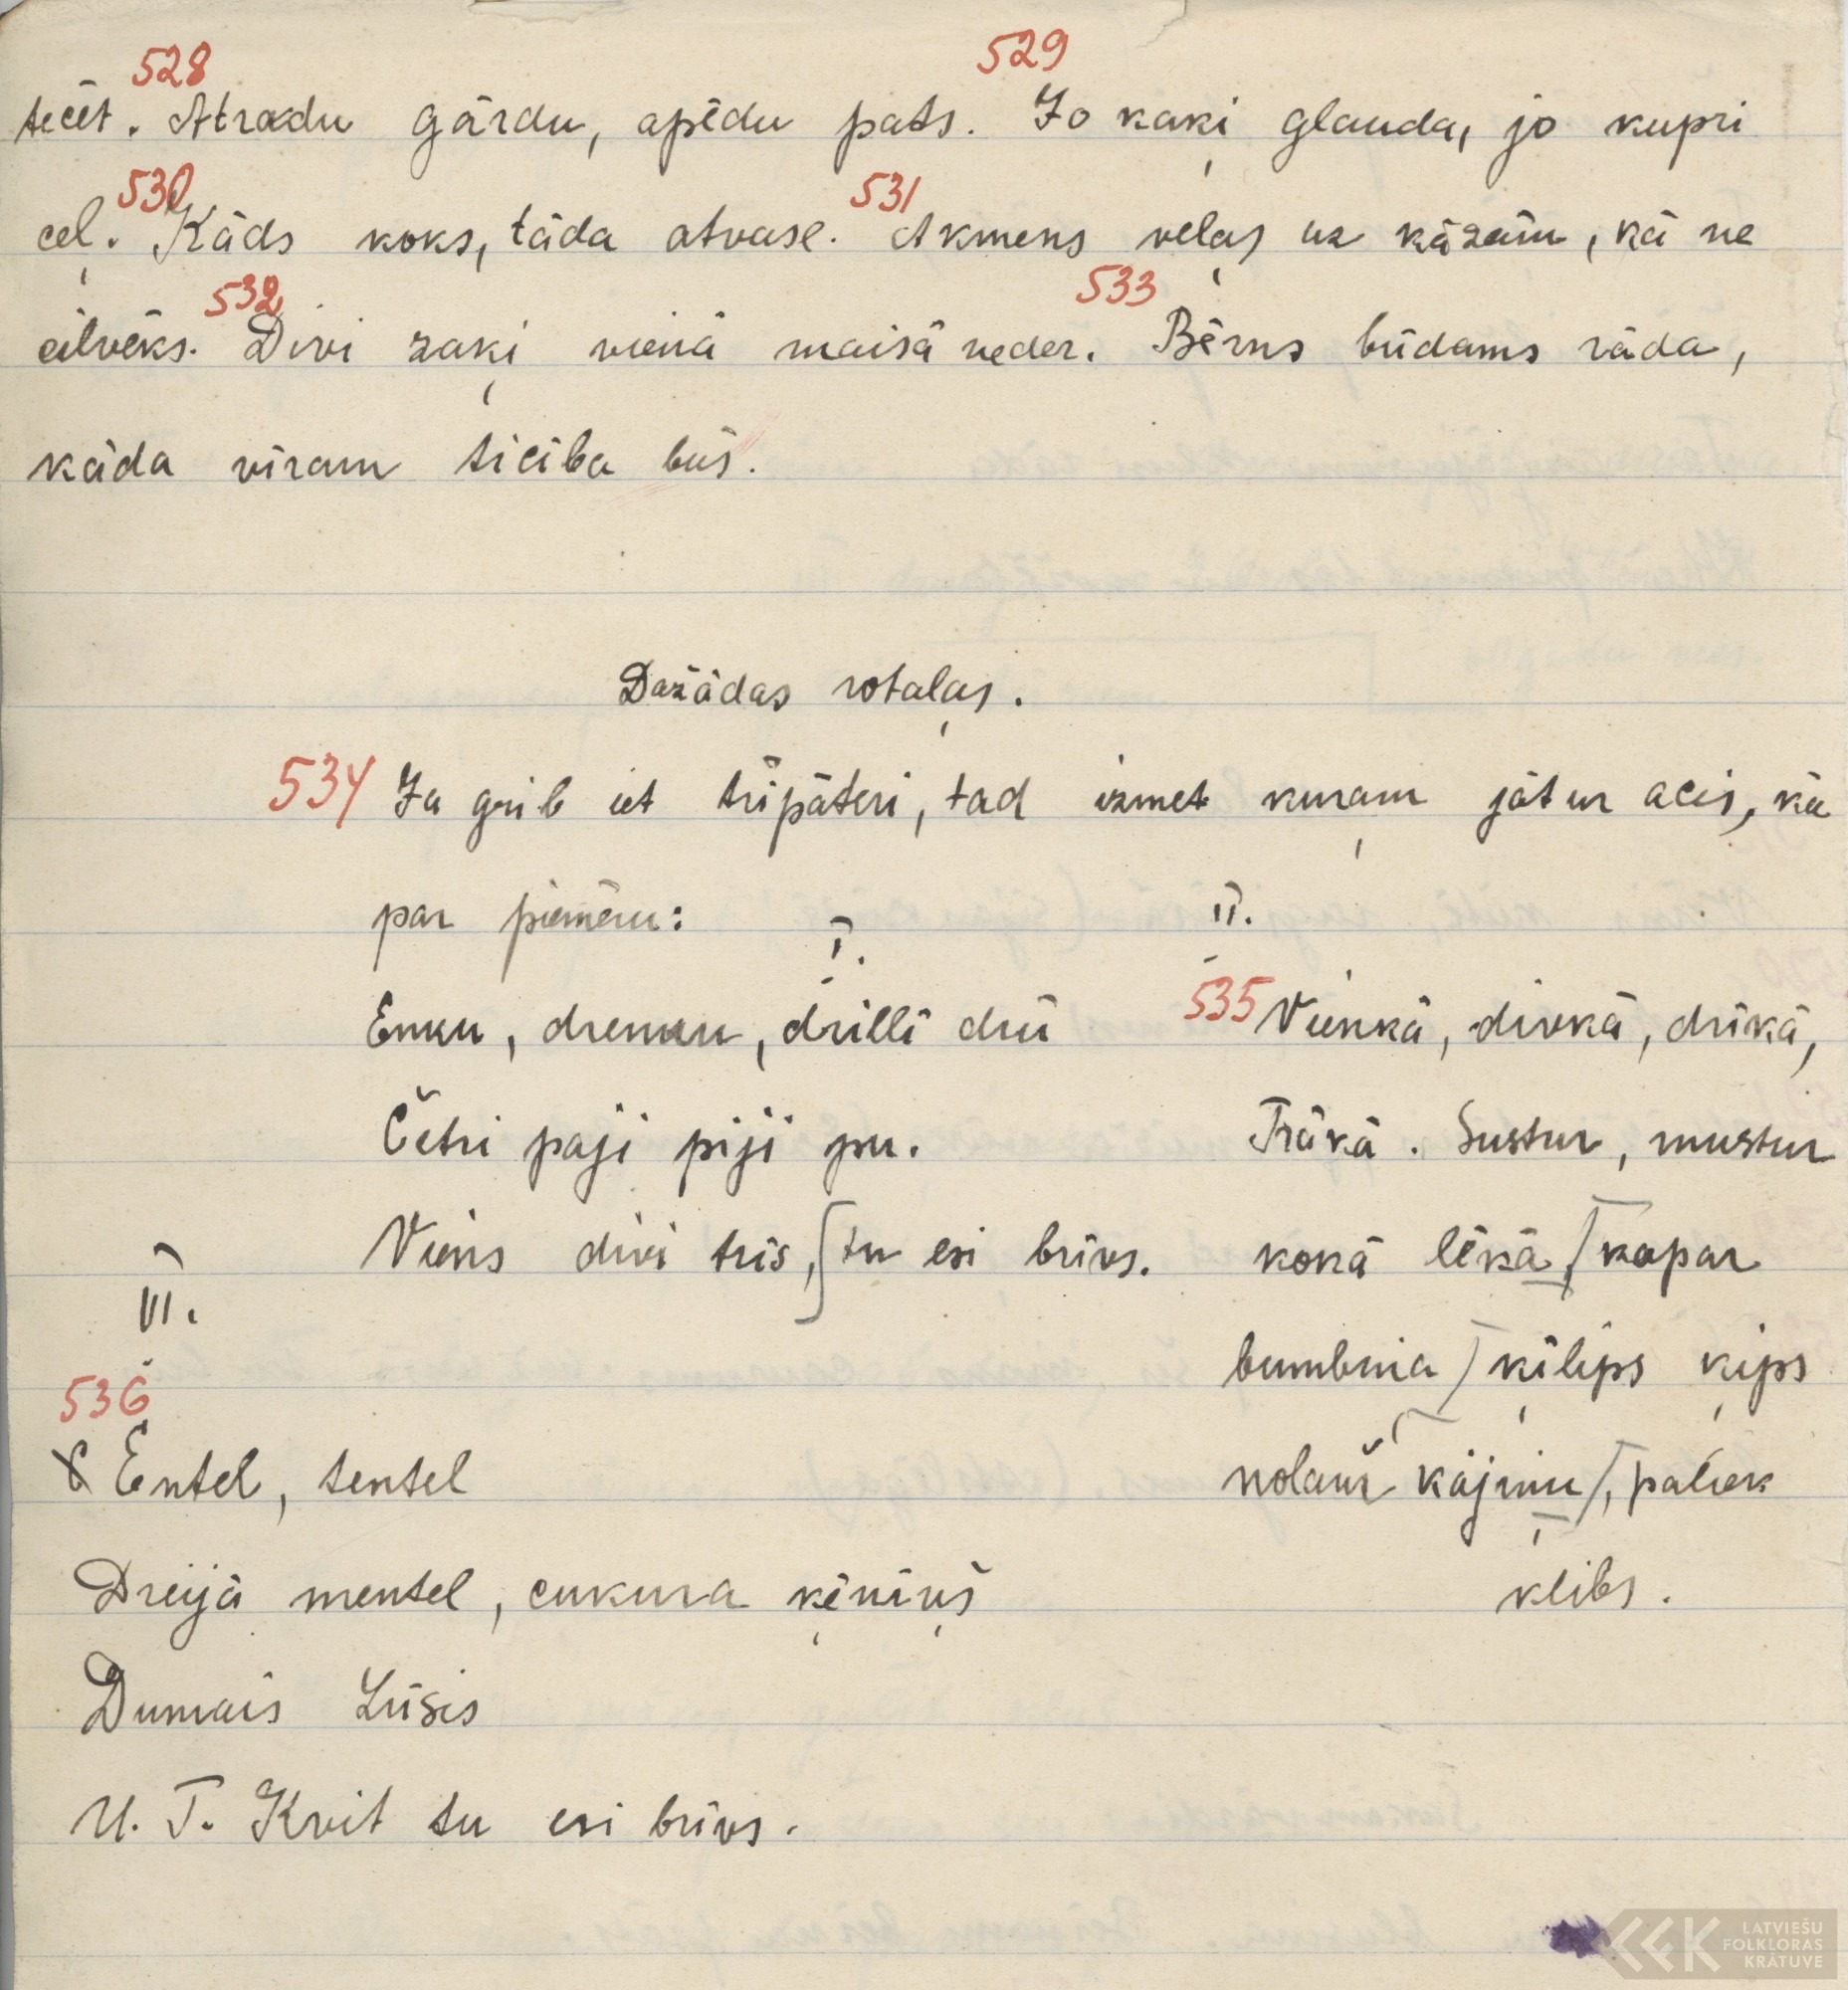 528 529
tecēt. Atradu gārdu, apēdu pats. Jo kaķi glauda, jo kupri
530 531
ceļ. Kāds koks, tāda atvase. Akmens veļas uz kāzām, kā ne
532 533
cilvēks. Divi zaķi vienā maisā neder. Bērns būdams rāda,
kāda vīram ticība būs.
Dažādas rotaļas.
534 Ja grib iet tripāteri, tad izmet kuŗam jātur acis, kā
par piemēru:
I.
Enku, drenku, drillī drū
Četri paji piji pu.
Viens divi trīs, tu esi brīvs.
II.
535 Vienkā, divkā, drikā,
Trākā. Sustur, mustur
kokā lēkā, kapar
bumbuia ķilips ķips
nolauž kājiņu, paliek
klibs.
III.
536
Entel, tentel
Dreijā mentel, cukura ķēniņš
Dumais Lūsis
U. T. Kvit tu esi brīvs.
LATVIEŠU
FOLKLORAS
KRĀTUVE